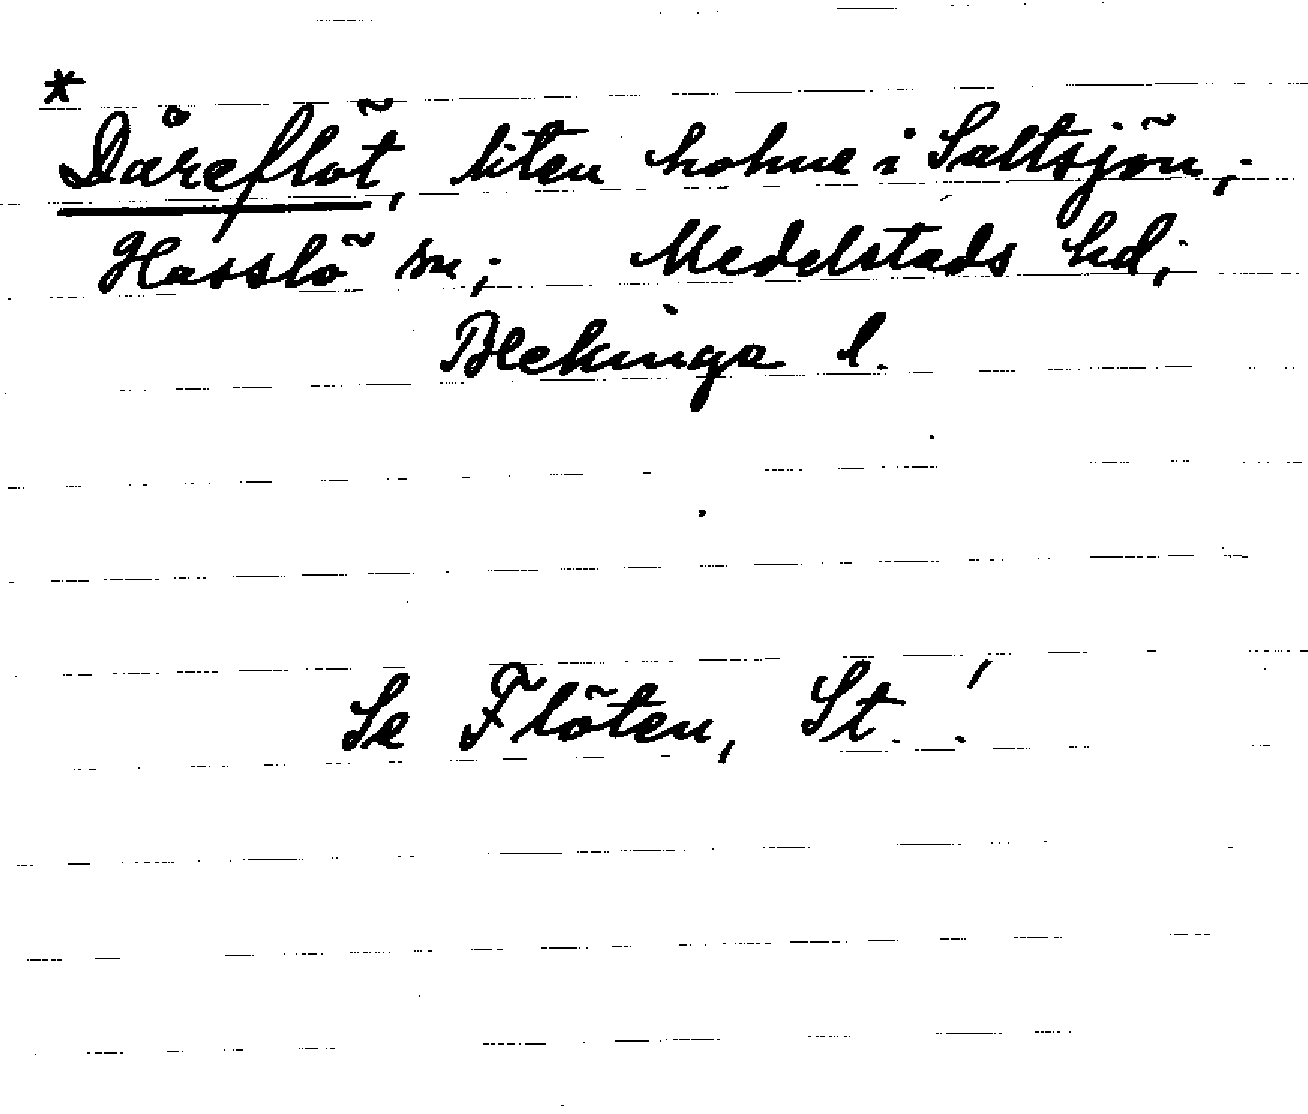 *
Dåreflöt, liten holme i Saltsjön;
Hasslö sn; Medelstads hd;
Blekinge l.
Se Flöten, St.!